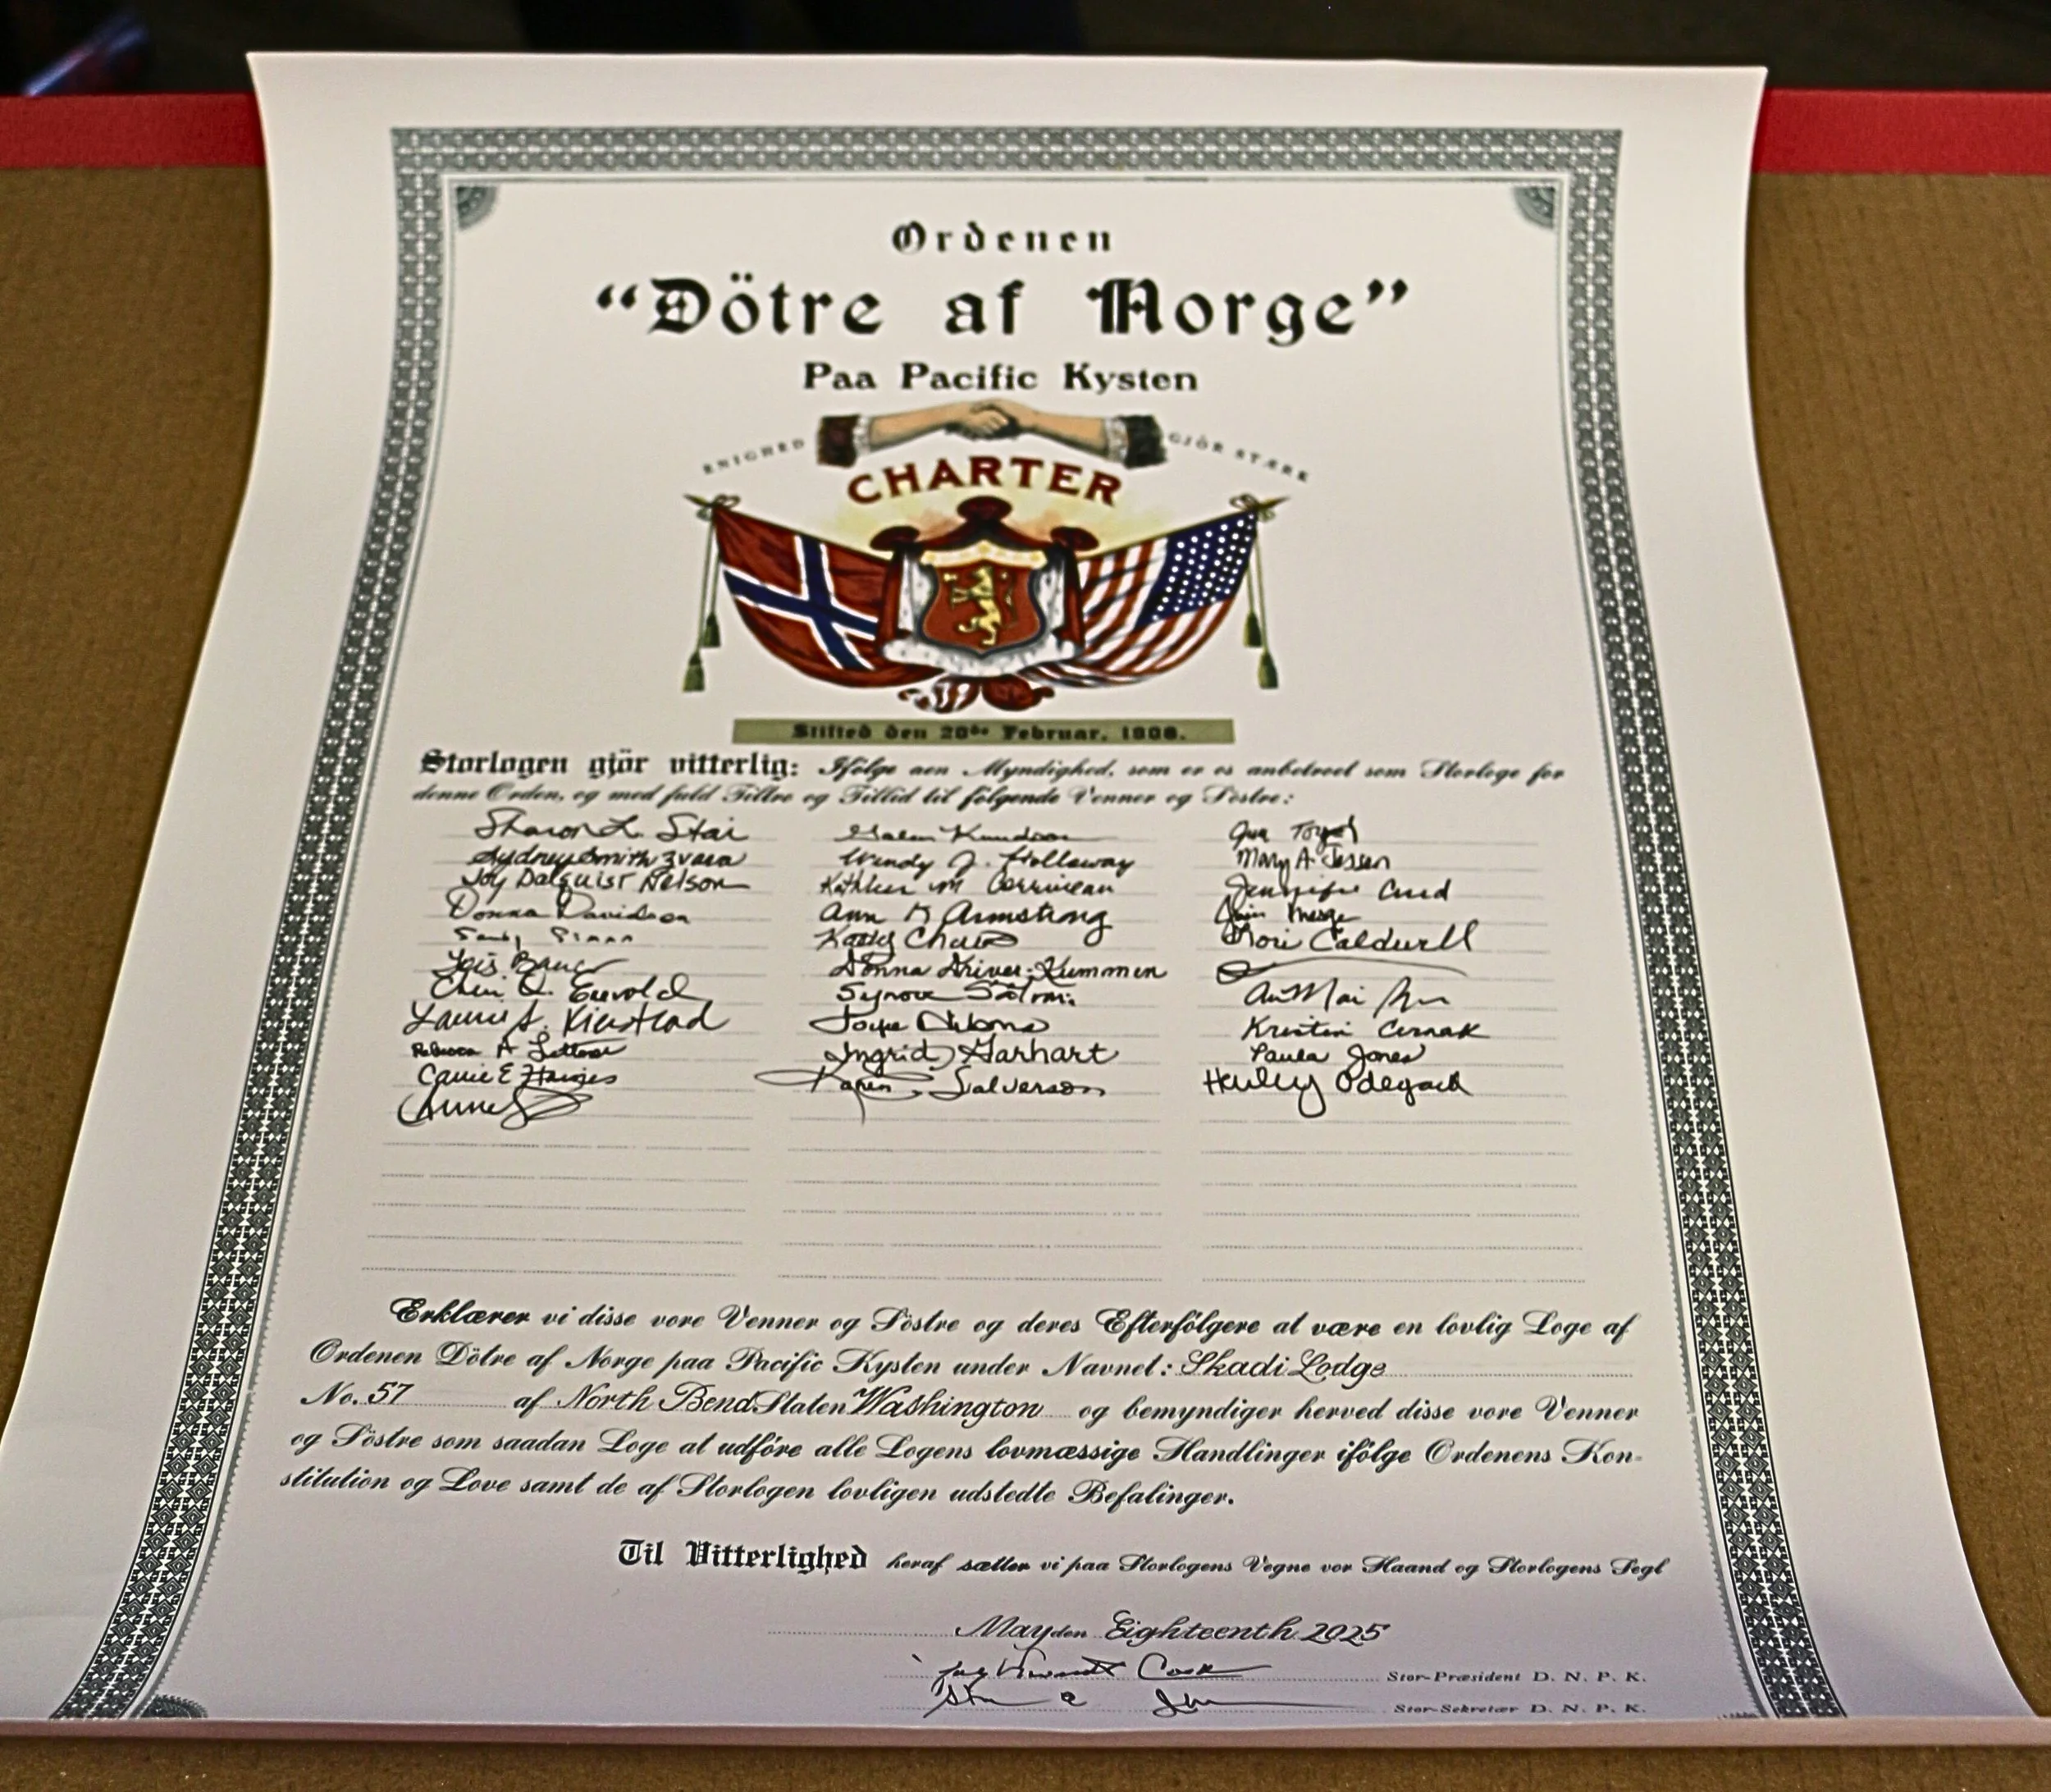 Ordenen
“Dötre af Norge”
Paa Pacific Kysten
ENIGHED GJÖR STÆRK
CHARTER
Stifted den 20de Februar, 1908.
Storlogen gjör vitterlig: Ifölge den Myndighed, som er os anbetroet som Storloge for
denne Orden, og med fuld Tiltro og Tillid til fölgende Venner og Söstre:
Sharon L. Stair
Sydney Smith Zvara
Joy Dalquist Nelson
Donna Davidson
Lois
Laurie A. Kierstead
Rebecca A
Carrie E Haines
Anne
Wendy J. Holloway
Kathleen M
Ann K Armstrong
Kathy
Donna Driver-Kummen
Synove
Ingrid Garhart
Karen Salverson
Mary A. Jessen
Jennifer
Lori Caldwell
Kristin
Paula Jones
Odegard
Erklærer vi disse vore Venner og Söstre og deres Efterfölgere at være en lovlig Loge af
Ordenen Dötre af Norge paa Pacific Kysten under Navnet: Skadi Lodge
No. 57 af North Bend Staten Washington og bemyndiger herved disse vore Venner
og Söstre som saadan Loge at udföre alle Logens lovmæssige Handlinger ifölge Ordenens Kon-
stitution og Love samt de af Storlogen lovligen udstedte Befalinger.
Til Vitterlighed heraf sætter vi paa Storlogens Vegne vor Haand og Storlogens Segl
May den Eighteenth 2025
Stor-Præsident D. N. P. K.
Stor-Sekretær D. N. P. K.